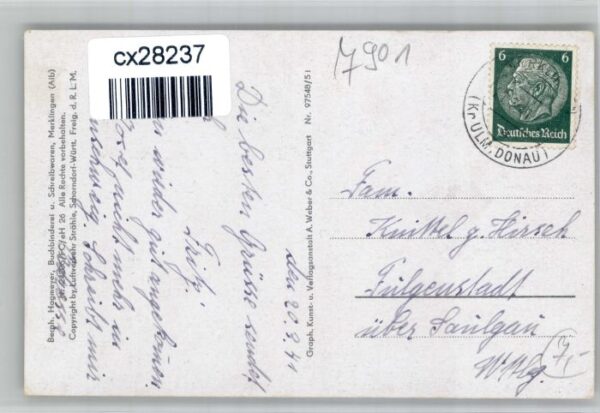 cx28237
7901
6 6
Deutsches Reich
(Kr. ULM, DONAU)
Bergh. Hagmeyer, Buchbinderei u. Schreibwaren, Merklingen (Alb)
eH 26 Alle Rechte vorbehalten.
Copyright by Luftverkehr Strähle, Schorndorf-Württ. Freig. d. R.L.M.
Graph. Kunst- u. Verlagsanstalt A. Weber & Co., Stuttgart Nr. 97548/51
den 20.9.41
Die besten Grüsse sendet
Fritz.
wieder gut angekommen.
nicht mehr in
Schreibt mir
Fam.
Knittel z. Hirsch
Fulgenstadt
über Saulgau
Wttg.
7,-